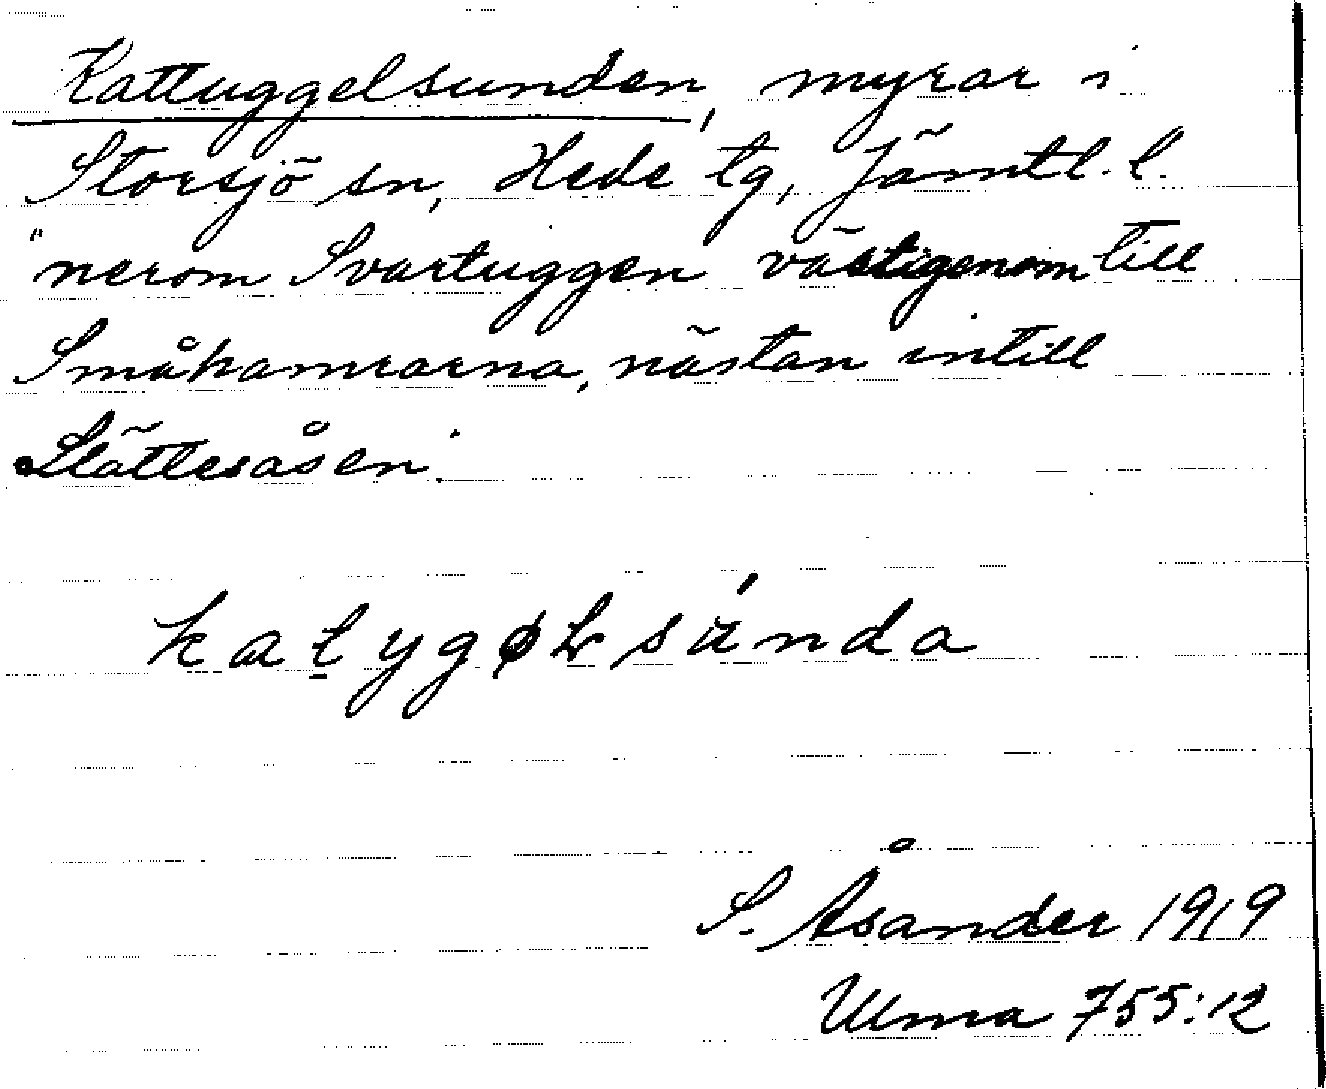 Kattuggelsunden, myrar i
Storsjö sn, Hede tg, Jämtl. l.
"nerom Svartuggen västigenom till
Småhamrarna, nästan intill
Slättesåsen.
katygøLsúnda
S. Åsander 1919
Ulma 755:12